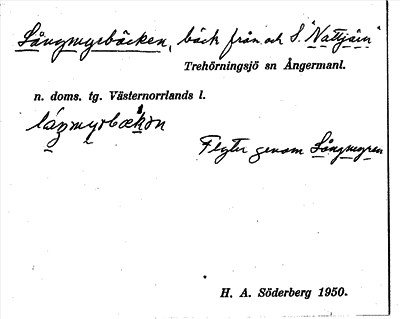 Långmyrbäcken, bäck från och S. "Nattjärn"
Trehörningsjö sn Ångermanl.
n. doms. tg. Västernorrlands l.
Flyter genom Långmyran
H. A. Söderberg 1950.